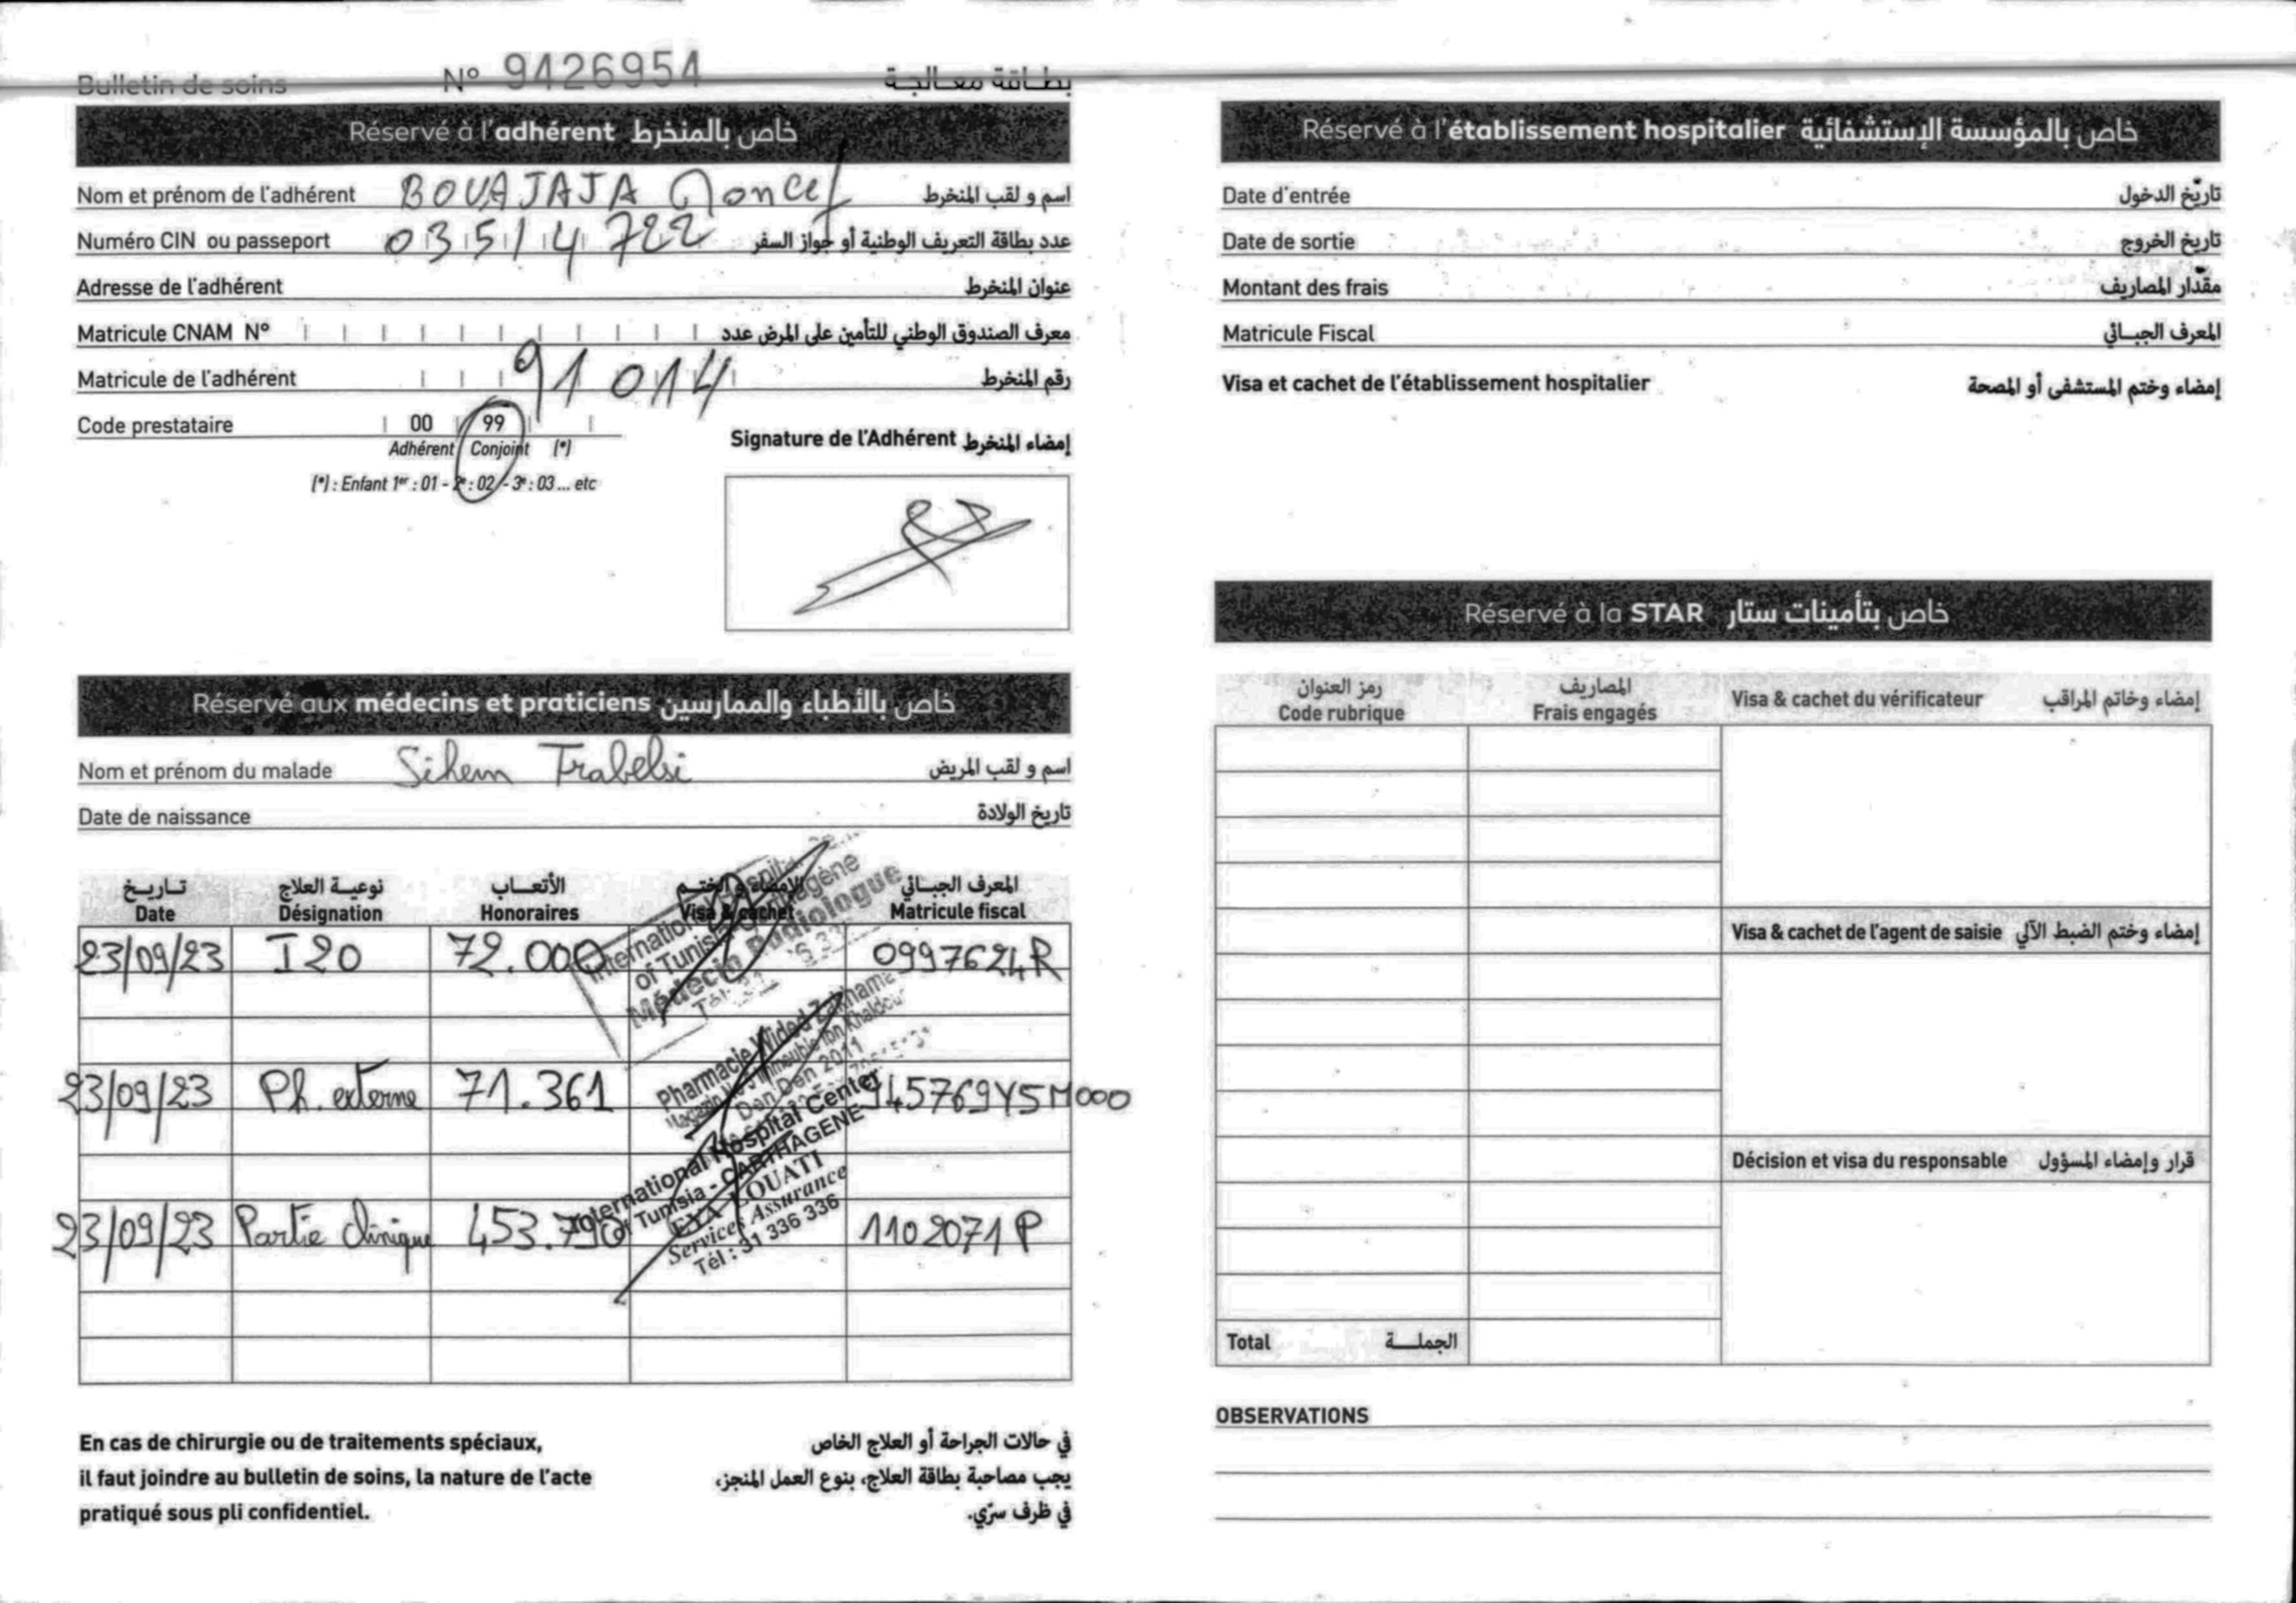 Bulletin de soins N° 9426954 بطاقة معالجة
Réservé à l'adhérent خاص بالمنخرط
Nom et prénom de l'adhérent BOUAJAJA Moncef اسم و لقب المنخرط
Numéro CIN ou passeport 03514722 عدد بطاقة التعريف الوطنية أو جواز السفر
Adresse de l'adhérent عنوان المنخرط
Matricule CNAM N° معرف الصندوق الوطني للتأمين على المرض عدد
Matricule de l'adhérent 91014 رقم المنخرط
Code prestataire 00 99
Adhérent Conjoint (*)
(*) : Enfant 1er : 01 - 2e : 02 - 3e : 03 ... etc
Signature de l'Adhérent إمضاء المنخرط
Réservé aux médecins et praticiens خاص بالأطباء والممارسين
Nom et prénom du malade Sihem Trabelsi اسم و لقب المريض
Date de naissance تاريخ الولادة
تاريخ نوعية العلاج الأتعاب الإمضاء و الختم المعرف الجبائي
Date Désignation Honoraires Visa & cachet Matricule fiscal
23/09/23 I20 72.000 0997624R
International Hospital
of Tunisia Carthagène
Médecin Radiologue
23/09/23 Ph. externe 71.361 945769Y5M000
Pharmacie Wided
Immeuble Ibn Khaldoun
Den Den 2011
23/09/23 Partie clinique 453.790 1102071P
International Hospital Center
of Tunisia - CARTHAGENE
EYA LOUATI
Services Assurance
Tél : 31 336 336
En cas de chirurgie ou de traitements spéciaux,
il faut joindre au bulletin de soins, la nature de l'acte
pratiqué sous pli confidentiel.
في حالات الجراحة أو العلاج الخاص
يجب مصاحبة بطاقة العلاج، بنوع العمل المنجز،
في ظرف سرّي.
Réservé à l'établissement hospitalier خاص بالمؤسسة الإستشفائية
Date d'entrée تاريخ الدخول
Date de sortie تاريخ الخروج
Montant des frais مقدار المصاريف
Matricule Fiscal المعرف الجبائي
Visa et cachet de l'établissement hospitalier إمضاء وختم المستشفى أو المصحة
Réservé à la STAR خاص بتأمينات ستار
رمز العنوان المصاريف
Code rubrique Frais engagés Visa & cachet du vérificateur إمضاء وخاتم المراقب
Visa & cachet de l'agent de saisie إمضاء وختم الضبط الآلي
Décision et visa du responsable قرار وإمضاء المسؤول
Total الجملة
OBSERVATIONS